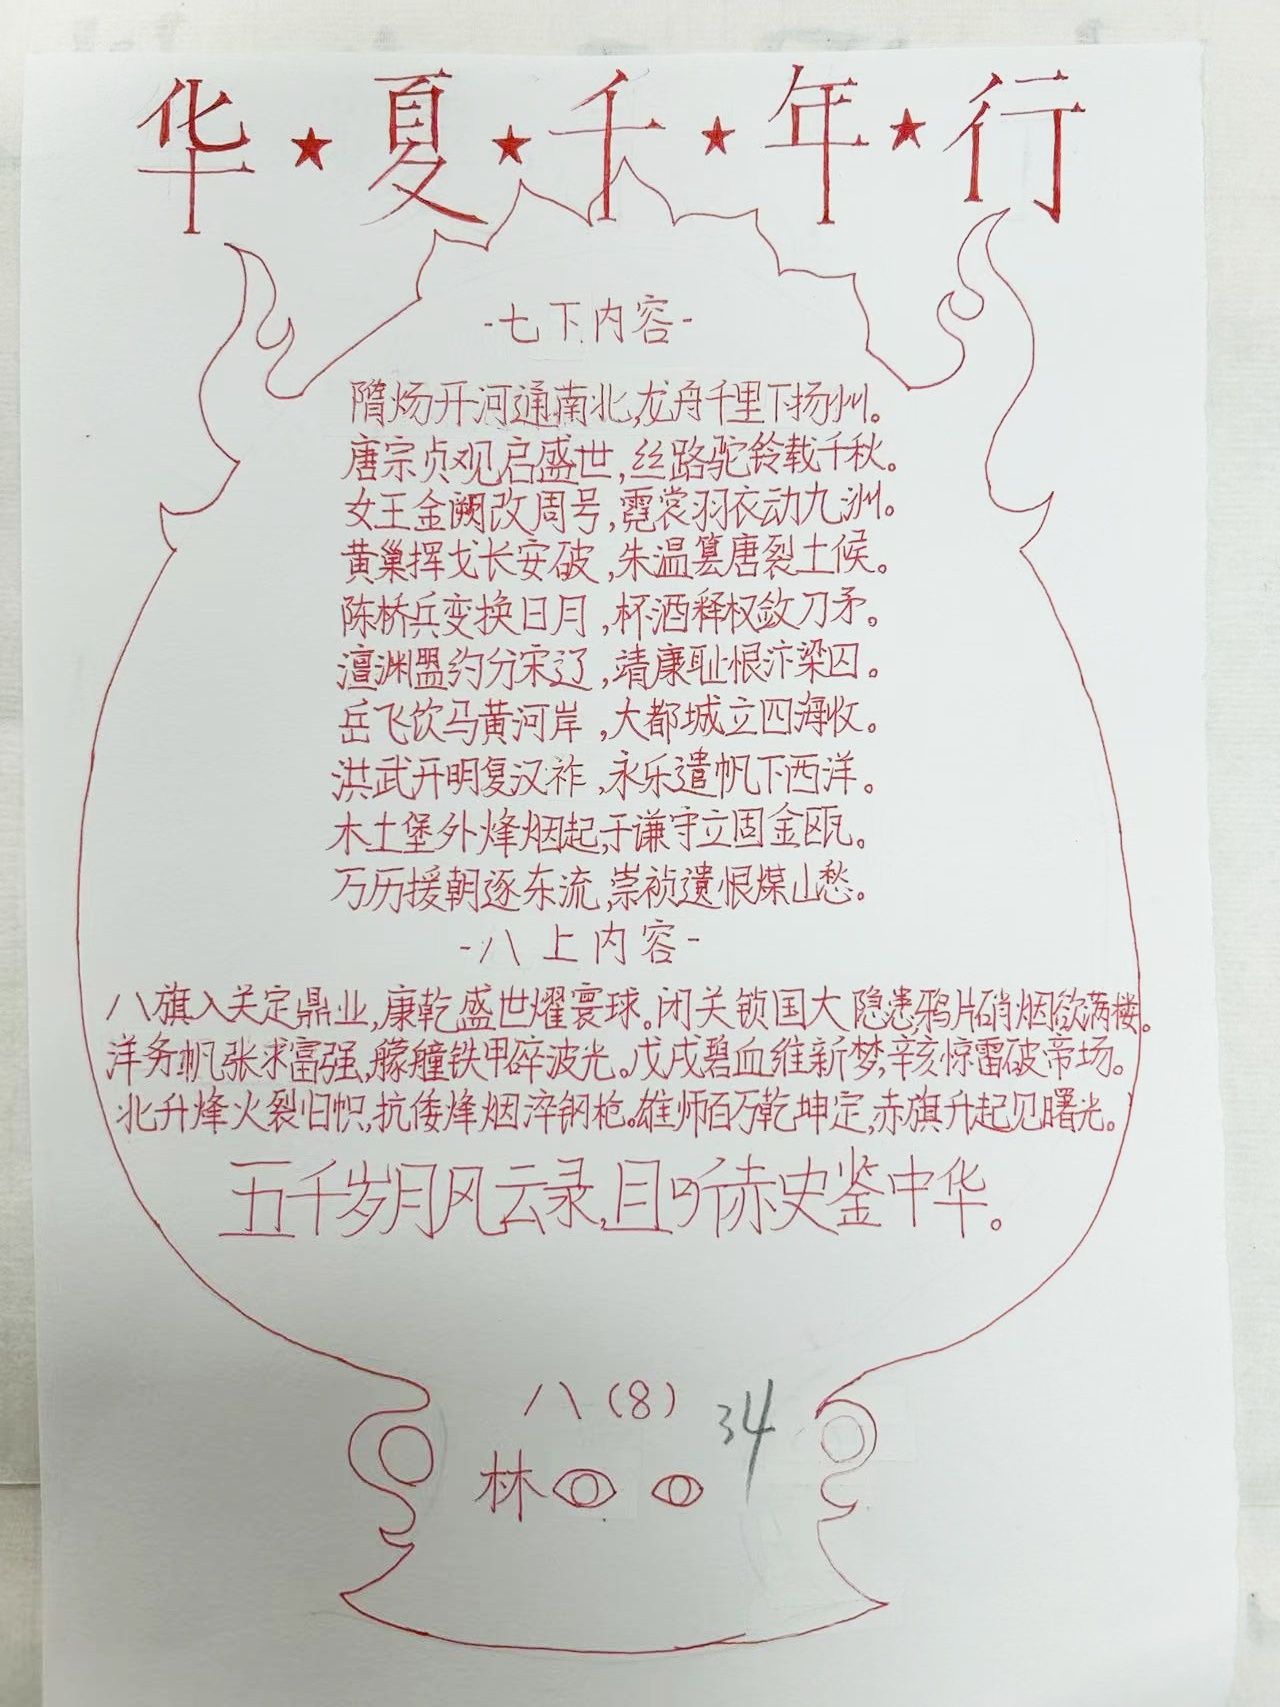 华★夏★千★年★行
-七下内容-
隋炀开河通南北,龙舟千里下扬州。
唐宗贞观启盛世,丝路驼铃载千秋。
女王金阙改周号,霓裳羽衣动九洲。
黄巢挥戈长安破,朱温篡唐裂土候。
陈桥兵变换日月,杯酒释权敛刀矛。
澶渊盟约分宋辽,靖康耻恨汴梁囚。
岳飞饮马黄河岸,大都城立四海收。
洪武开明复汉祚,永乐遣帆下西洋。
木土堡外烽烟起,于谦守立固金瓯。
万历援朝逐东流,崇祯遗恨煤山愁。
-八上内容-
八旗入关定鼎业,康乾盛世耀寰球。闭关锁国大隐患,鸦片硝烟欲满楼。
洋务帆张求富强,艨艟铁甲碎波光。戊戌碧血维新梦,辛亥惊雷破帝场。
北升烽火裂旧帜,抗倭烽烟淬钢枪。雄师百万乾坤定,赤旗升起见曙光。
五千岁月风云录,且听赤史鉴中华。
八(8)
34
林